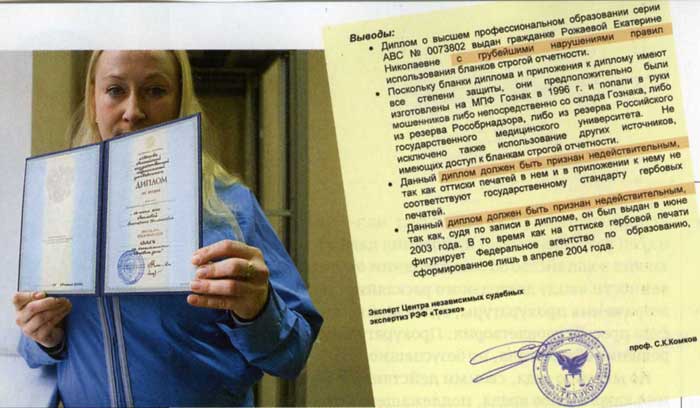 ДИПЛОМ
Выводы:
• Диплом о высшем профессиональном образовании серии
АВС № 0073802 выдан гражданке Рожаевой Екатерине
Николаевне с грубейшими нарушениями правил
использования бланков строгой отчетности.
• Поскольку бланки диплома и приложения к диплому имеют
все степени защиты, они предположительно были
изготовлены на МПФ Гознак в 1996 г. и попали в руки
мошенников либо непосредственно со склада Гознака, либо
из резерва Рособрнадзора, либо из резерва Российского
государственного медицинского университета. Не
исключено также использование других источников,
имеющих доступ к бланкам строгой отчетности.
• Данный диплом должен быть признан недействительным,
так как оттиски печатей в нем и в приложении к нему не
соответствуют государственному стандарту гербовых
печатей.
• Данный диплом должен быть признан недействительным,
так как, судя по записи в дипломе, он был выдан в июне
2003 года. В то время как на оттиске гербовой печати
фигурирует Федеральное агентство по образованию,
сформированное лишь в апреле 2004 года.
Эксперт Центра независимых судебных
экспертиз РЭФ «Техэко»
проф. С.К.Комков
ТЕХЭКО